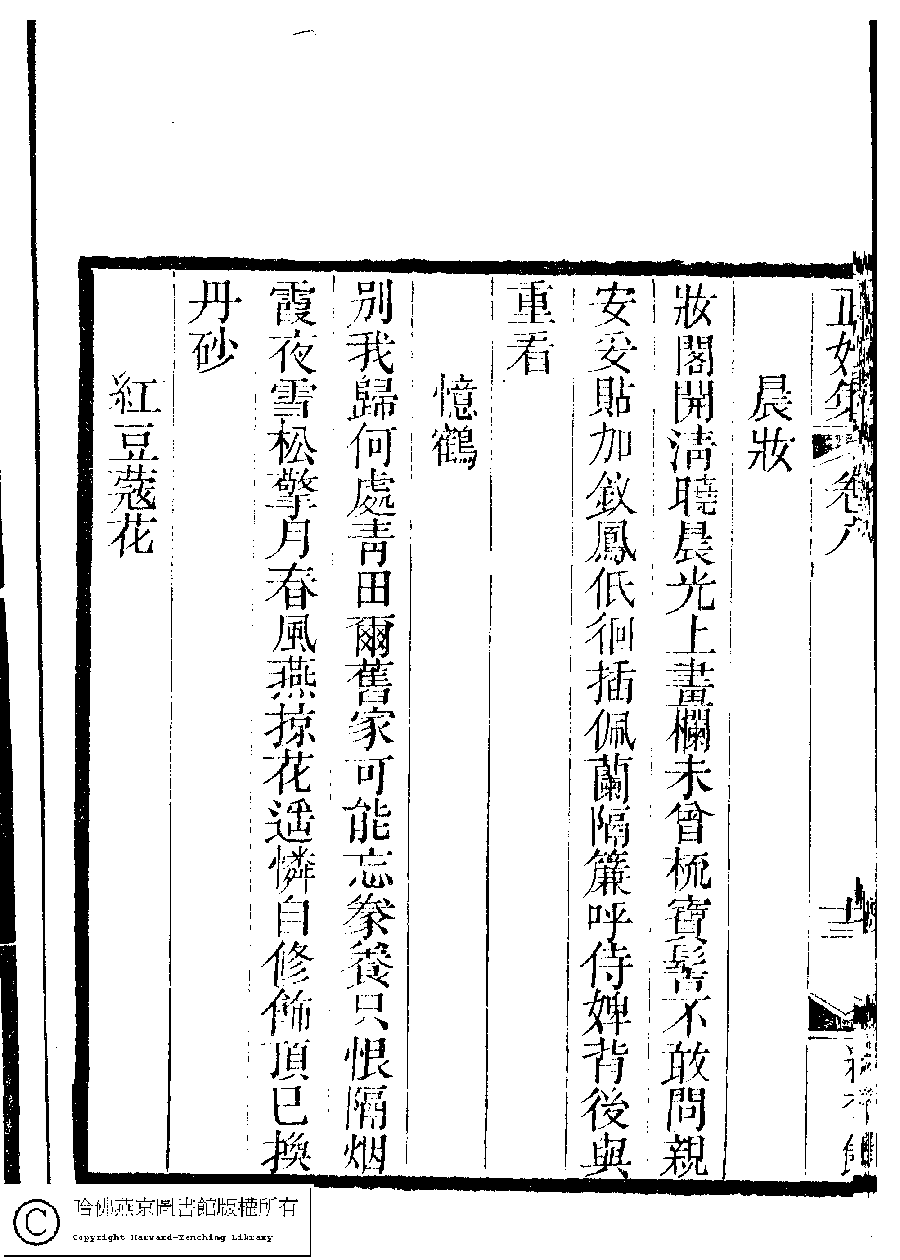 正始集 卷六
晨妝
妝閣開淸曉晨光上畫欄未曾梳寶髻不敢問親
安妥貼加釵鳳低徊插佩蘭隔簾呼侍婢背後與
重看
憶鶴
別我歸何處靑田爾舊家可能忘豢養只恨隔烟
霞夜雪松擎月春風燕掠花遥憐自修飾頂已換
丹砂
紅豆蔻花
哈佛燕京圖書館版權所有
Copyright Harvard-Yenching Library